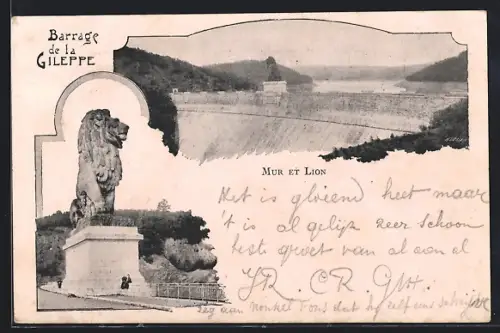 Barrage
de la
GILEPPE
MUR ET LION
Het is gloeiend heet maar
't is al gelijk zeer schoon
beste groet van al aan al
zeg aan nonkel dat hij zelf eens